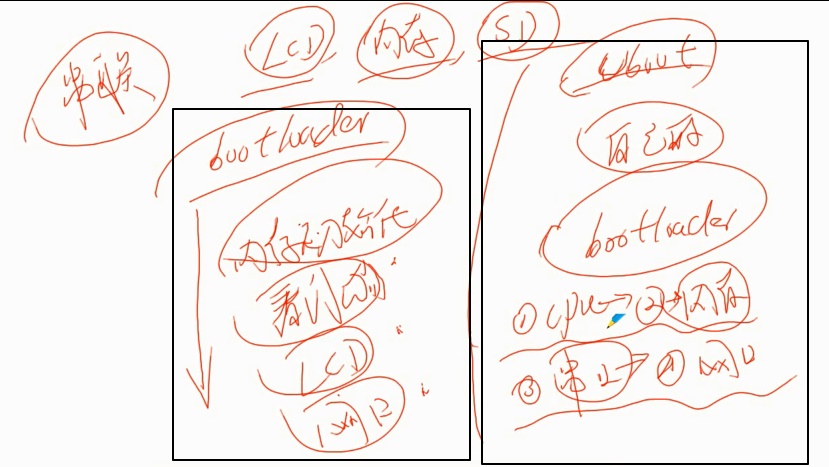 串联
LCD 内存 SD
bootloader
内存初始化
LCD
网口
Uboot
自己的
bootloader
① cpu → ② → 内存
③ 串口 → ④ 网口